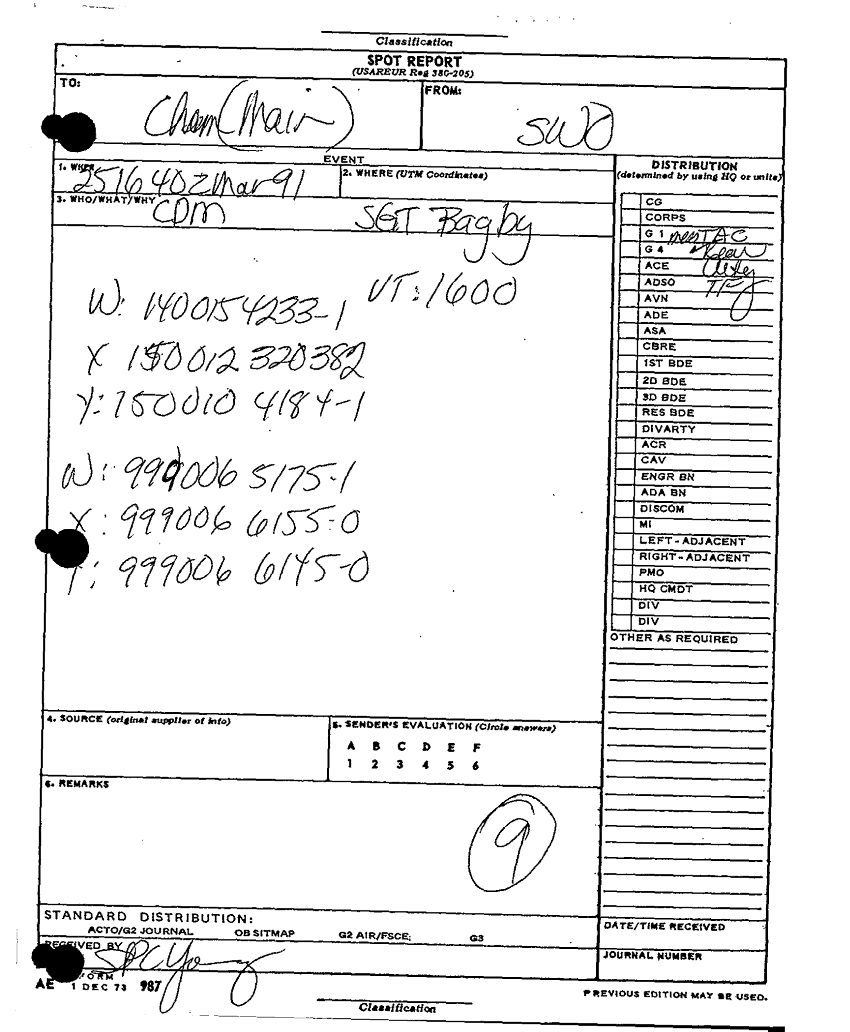 Classification
SPOT REPORT
(USAREUR Reg 380-205)
TO:
Chem (Main)
FROM:
SWO
EVENT
1. WHEN
251640ZMar91
2. WHERE (UTM Coordinates)
3. WHO/WHAT/WHY
CDM SGT Bagby
W: 1400154233-1 VT: 1600
X 150012 320382
Y: 150010 4184-1
W: 999006 5175-1
X: 999006 6155-0
Y: 999006 6145-0
DISTRIBUTION
(determined by using HQ or units)
CG
CORPS
G 1
G 4
ACE
ADSO
AVN
ADE
ASA
CBRE
1ST BDE
2D BDE
3D BDE
RES BDE
DIVARTY
ACR
CAV
ENGR BN
ADA BN
DISCOM
MI
LEFT-ADJACENT
RIGHT-ADJACENT
PMO
HQ CMDT
DIV
DIV
OTHER AS REQUIRED
4. SOURCE (original supplier of info)
5. SENDER'S EVALUATION (Circle answers)
A B C D E F
1 2 3 4 5 6
6. REMARKS
9
STANDARD DISTRIBUTION:
ACTO/G2 JOURNAL OB SITMAP G2 AIR/FSCE; G3
RECEIVED BY
SPC Young
DATE/TIME RECEIVED
JOURNAL NUMBER
AE FORM 1 DEC 73 987
PREVIOUS EDITION MAY BE USED.
Classification